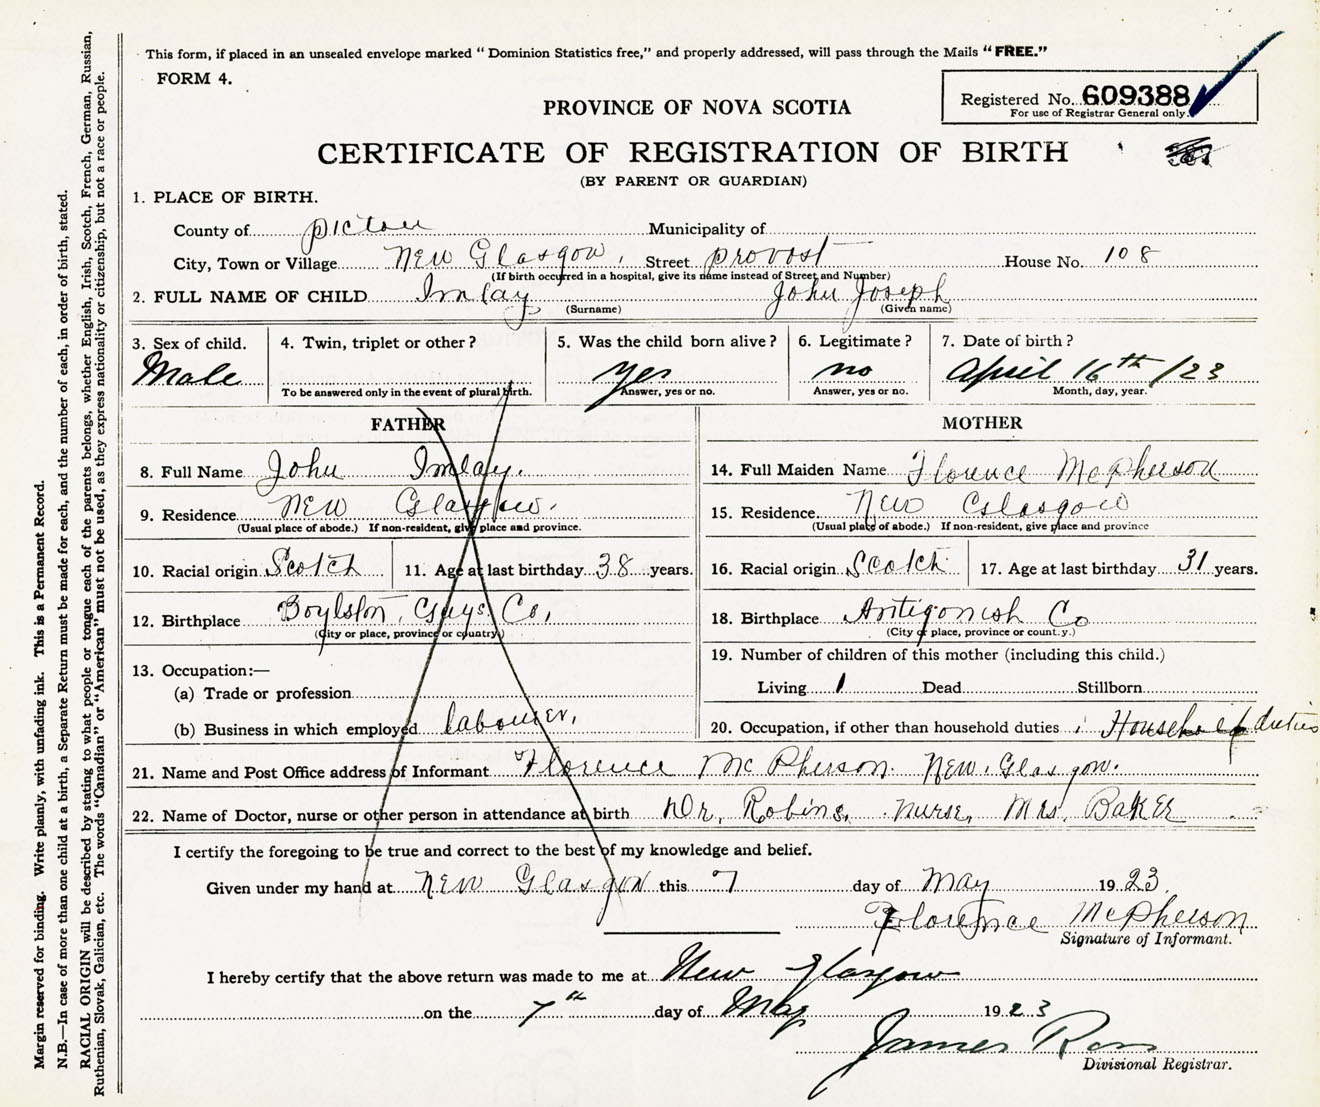 This form, if placed in an unsealed envelope marked "Dominion Statistics free," and properly addressed, will pass through the Mails "FREE."
FORM 4.
Registered No. 609388
For use of Registrar General only.
PROVINCE OF NOVA SCOTIA
CERTIFICATE OF REGISTRATION OF BIRTH
(BY PARENT OR GUARDIAN)
1. PLACE OF BIRTH.
County of Pictou Municipality of
City, Town or Village New Glasgow, Street Provost House No. 108
(If birth occurred in a hospital, give its name instead of Street and Number)
2. FULL NAME OF CHILD Imlay John Joseph
(Surname) (Given name)
3. Sex of child. 4. Twin, triplet or other? 5. Was the child born alive? 6. Legitimate? 7. Date of birth?
Male yes no April 16th /23
To be answered only in the event of plural birth. Answer, yes or no. Answer, yes or no. Month, day, year.
FATHER MOTHER
8. Full Name John Imlay. 14. Full Maiden Name Florence McPherson
9. Residence New Glasgow. 15. Residence New Glasgow
(Usual place of abode.) If non-resident, give place and province. (Usual place of abode.) If non-resident, give place and province
10. Racial origin Scotch 11. Age at last birthday 38 years. 16. Racial origin Scotch 17. Age at last birthday 31 years.
12. Birthplace Boylston, Guys. Co, 18. Birthplace Antigonish Co
(City or place, province or country) (City or place, province or count.y.)
13. Occupation:— 19. Number of children of this mother (including this child.)
(a) Trade or profession Living 1 Dead Stillborn
(b) Business in which employed labourer, 20. Occupation, if other than household duties Household duties
21. Name and Post Office address of Informant Florence McPherson. New. Glasgow.
22. Name of Doctor, nurse or other person in attendance at birth Dr. Robins, Nurse, Mrs. Baker
I certify the foregoing to be true and correct to the best of my knowledge and belief.
Given under my hand at New Glasgow this 7 day of May 1923.
Florence McPherson
Signature of Informant.
I hereby certify that the above return was made to me at New Glasgow
on the 7th day of May 1923
James Ross
Divisional Registrar.
Margin reserved for binding. Write plainly, with unfading ink. This is a Permanent Record.
N.B.—In case of more than one child at a birth, a Separate Return must be made for each, and the number of each, in order of birth, stated.
RACIAL ORIGIN will be described by stating to what people or tongue each of the parents belongs, whether English, Irish, Scotch, French, German, Russian,
Ruthenian, Slovak, Galician, etc. The words "Canadian" or "American" must not be used, as they express nationality or citizenship, but not a race or people.